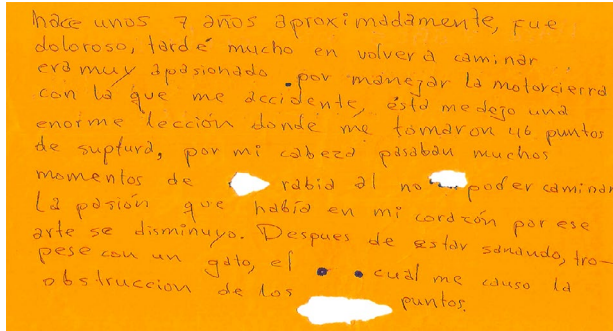 hace unos 7 años aproximadamente, Fue
doloroso, tardé mucho en volver a caminar
era muy apasionado por manejar la motorcierra
con la que me accidente, ésta me dejo una
enorme lección donde me tomaron 46 puntos
de suptura, por mi cabeza pasaban muchos
momentos de rabia al no poder caminar
La pasión que había en mi corazón por ese
arte se disminuyo. Despues de estar sanando, tro-
pese con un gato, el cual me causo la
obstruccion de los puntos.